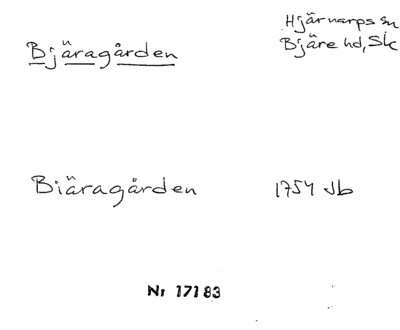 Hjärnarps sn
Bjäragården
Bjäre hd, Sk
Biäragården 1754 Jb
Nr 17183